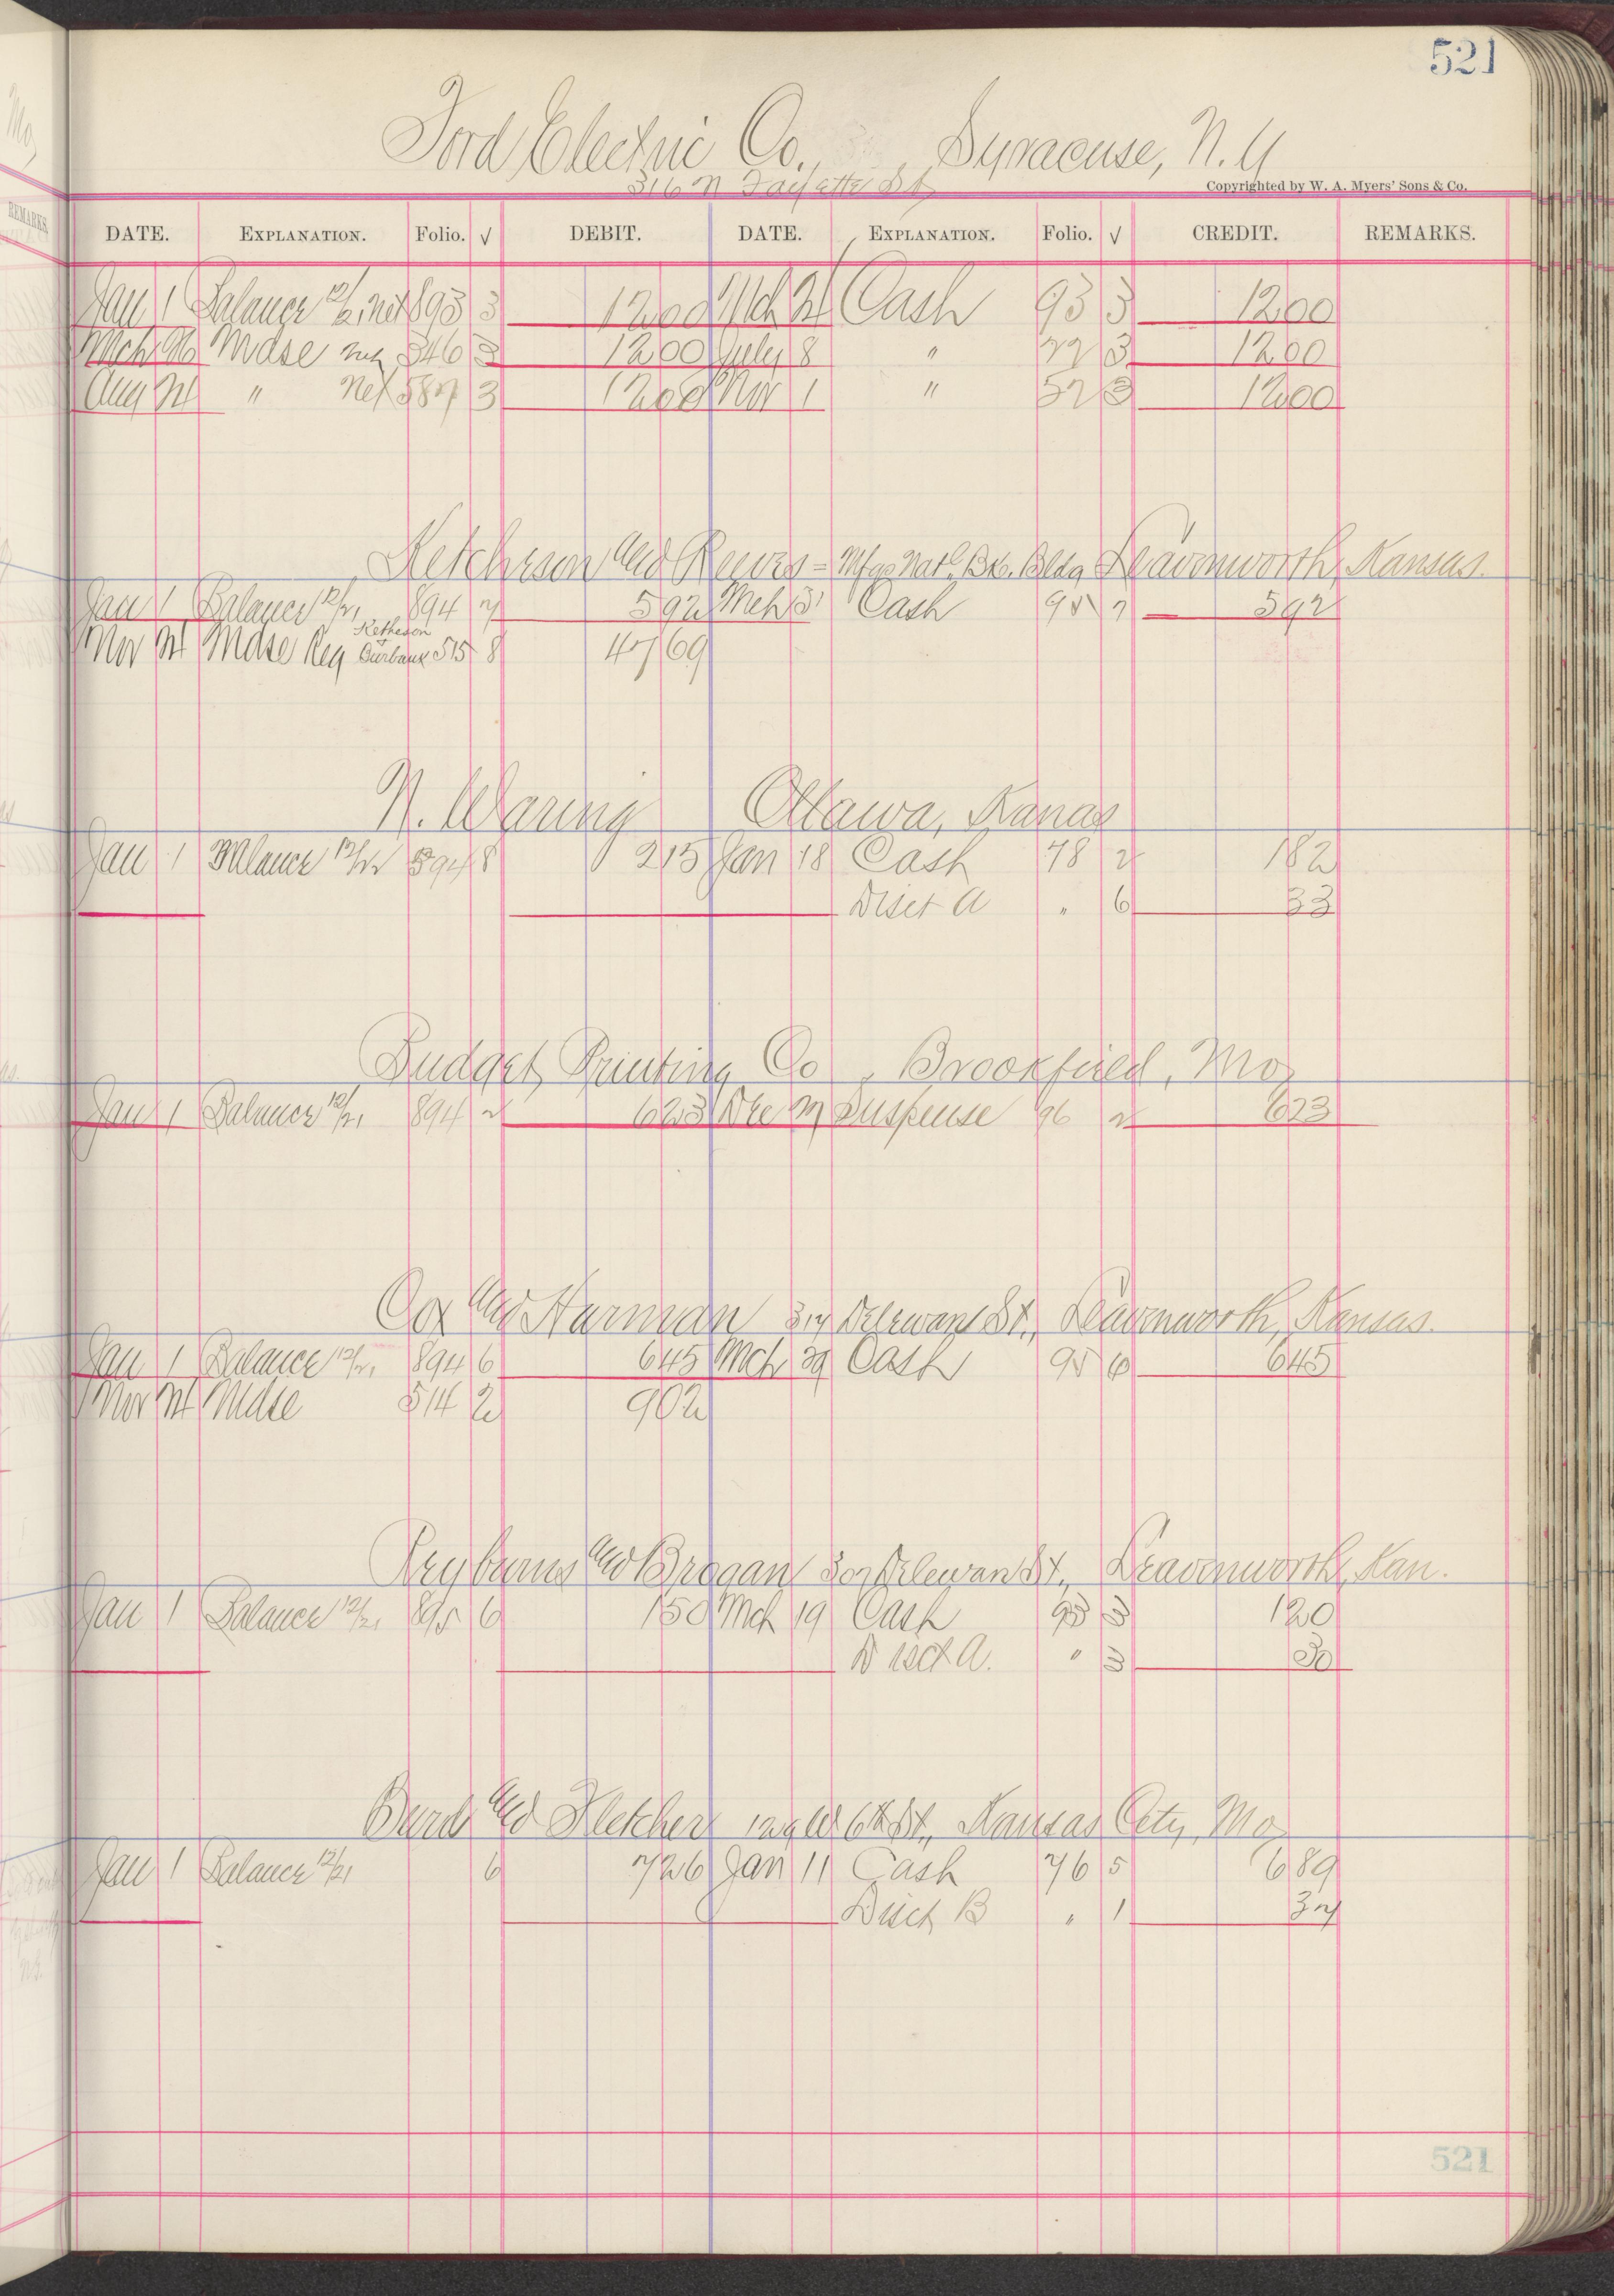 521
Ford Electric Co., Syracuse, N.Y
316 N Fayette St
Copyrighted by W. A. Myers' Sons & Co.
DATE. EXPLANATION. Folio. √ DEBIT. DATE. EXPLANATION. Folio. √ CREDIT. REMARKS.
Jan 1 Balance 893 3 1200 Mch Cash 93 3 1200
Mch Mdse 546 3 1200 July 8 " 3 1200
Aug " Net 587 3 1200 Nov 1 " 52 3 1200
Ketcheson and Reeves - Mfgs Natl. Bk. Bldg Leavenworth, Kansas.
Jan 1 Balance 12/21 894 7 592 Mch 31 Cash 95 7 592
Ketheson
Nov Mdse Reg & Burbank 515 8 4769
N. Waring Ottawa, Kanas
Jan 1 Balance 894 8 215 Jan 18 Cash 78 2 182
Disct A " 6 33
Budget Printing Co, Brookfield, Mo
Jan 1 Balance 12/21 894 2 623 Dec Suspense 96 2 623
Cox and Harman Delewan St., Leavenworth, Kansas.
Jan 1 Balance 12/21 894 6 645 Mch 29 Cash 95 6 645
Nov Mdse 514 2 902
Reyburns and Brogan Delewan St., Leavenworth, Kan.
Jan 1 Balance 12/21 895 6 150 Mch 19 Cash 93 3 120
Disct A. " 3 30
Burd and Fletcher W 6th St., Kansas City, Mo
Jan 1 Balance 12/21 6 726 Jan 11 Cash 76 5 689
Disct B " 1 37
521